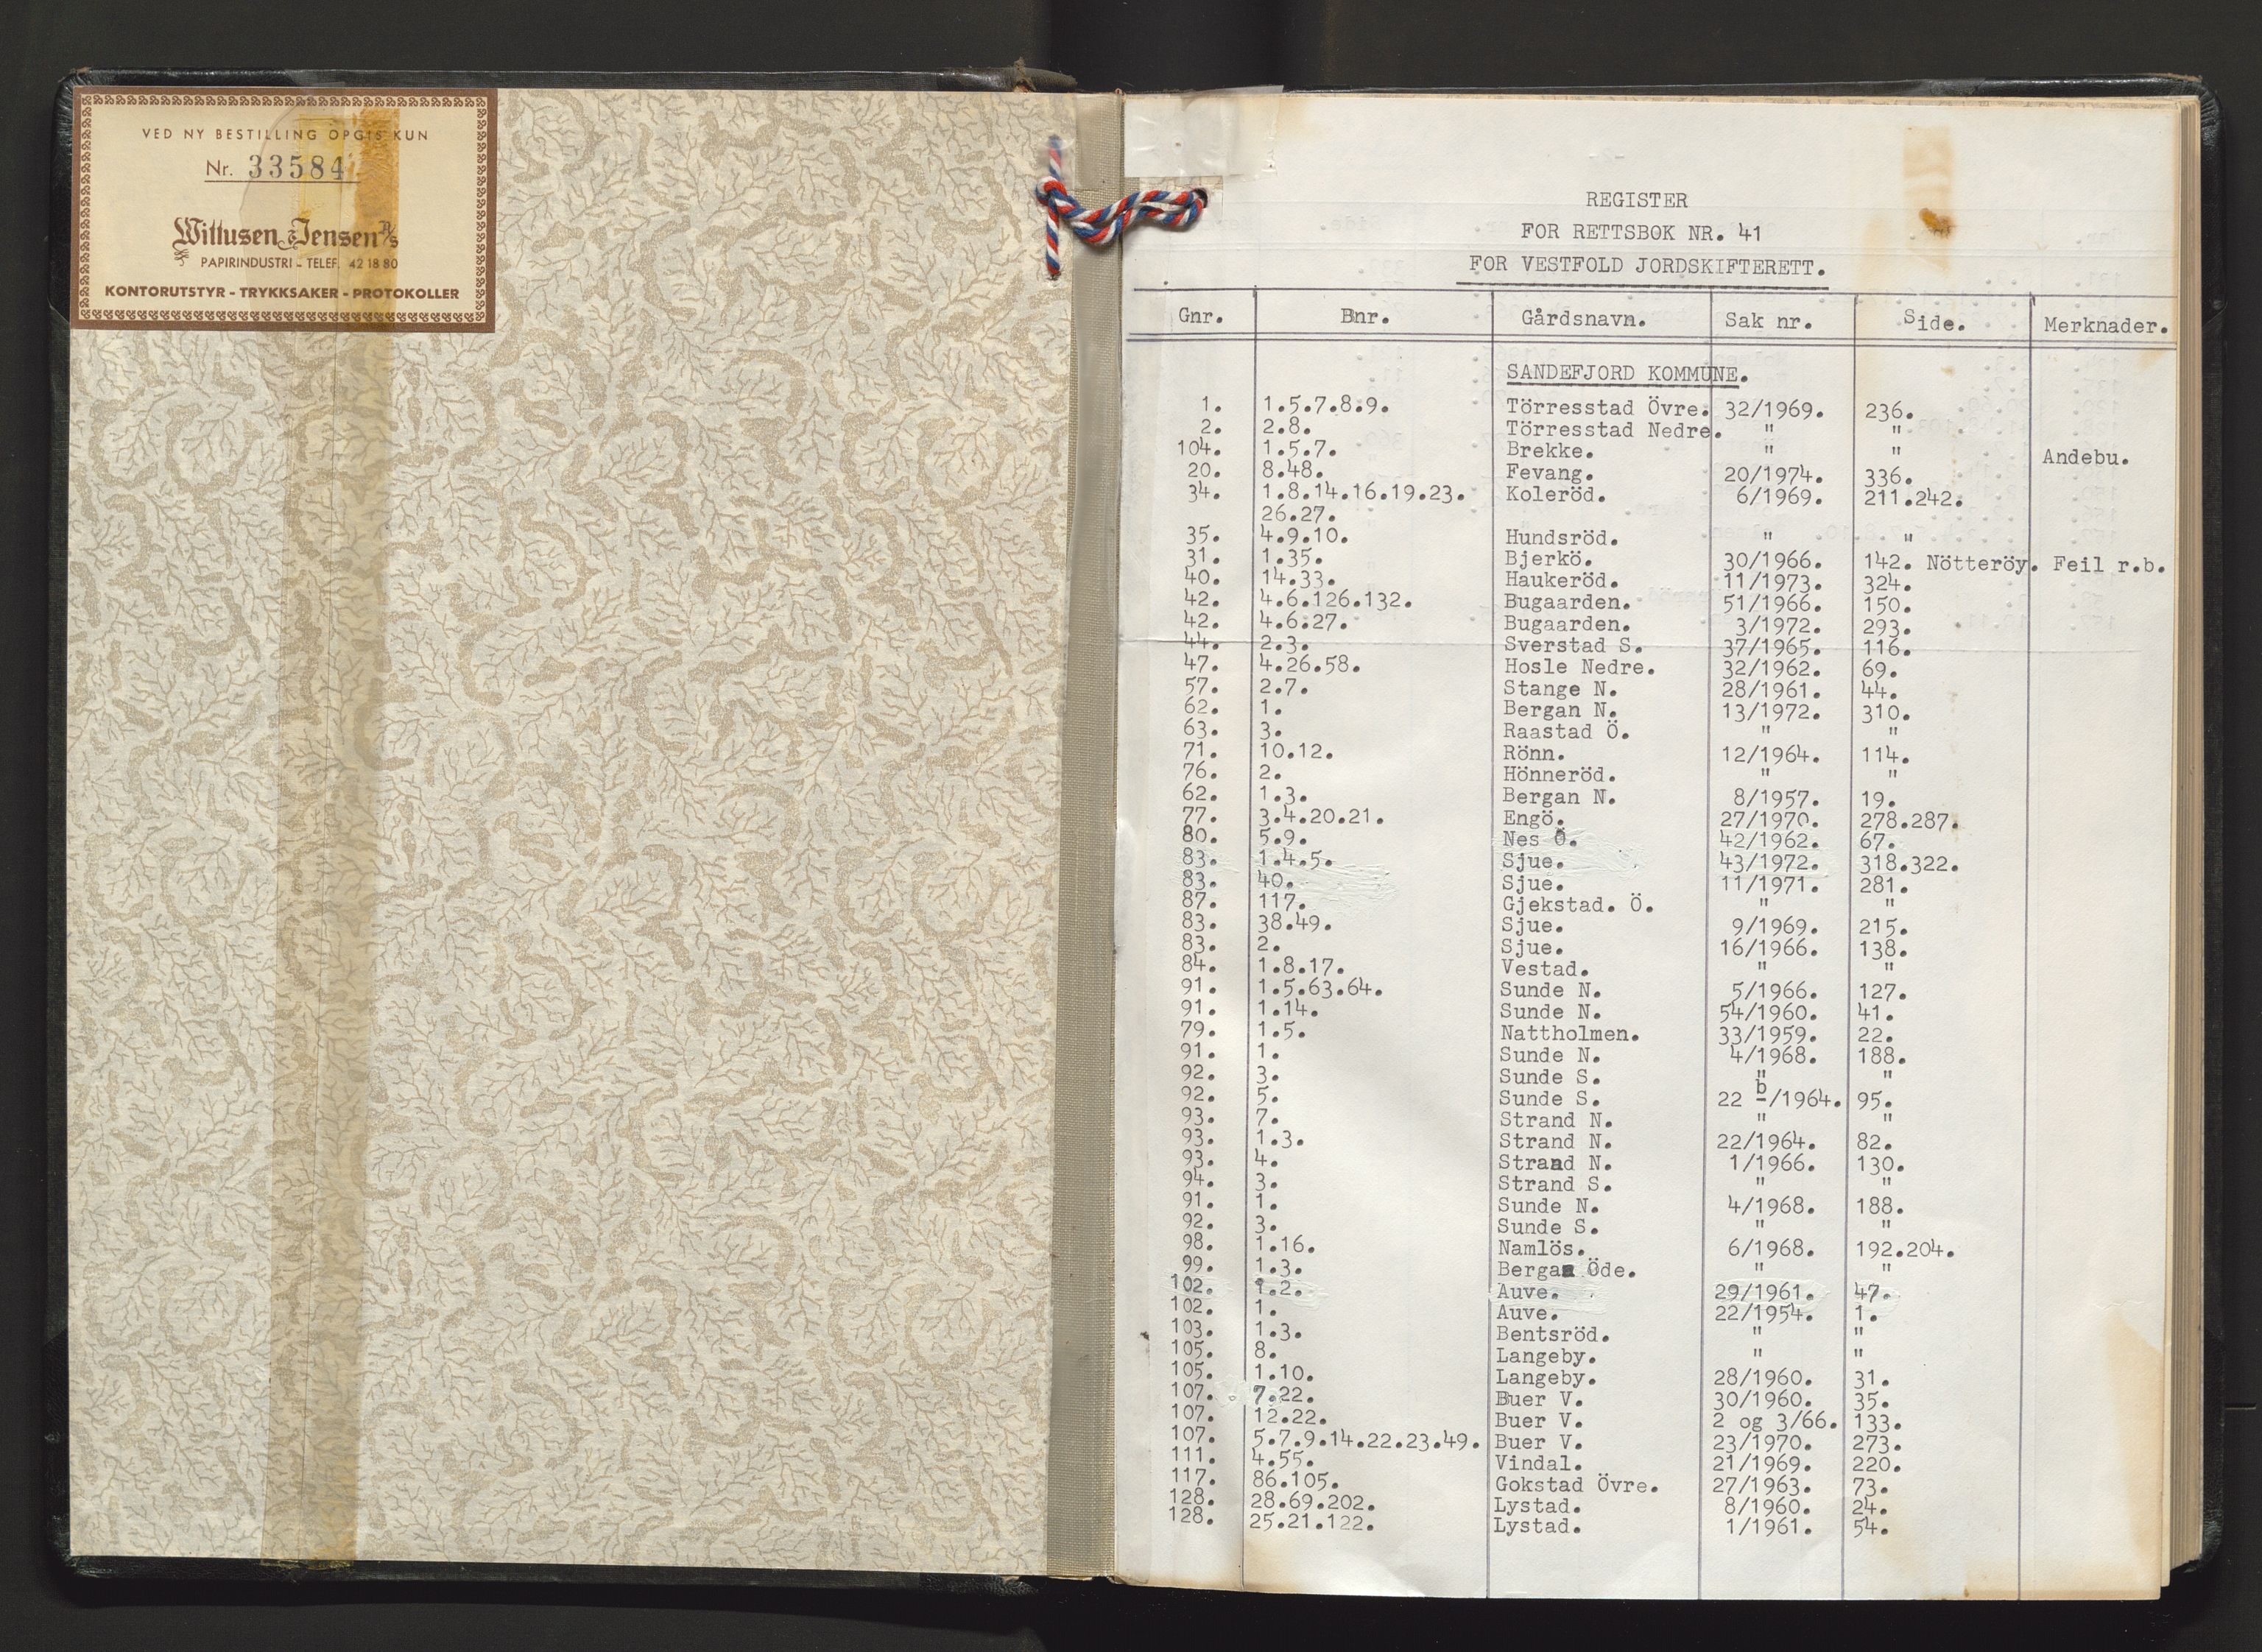 VED NY BESTILLING OPGIS KUN
Nr. 33584
Wittusen & Jensen A/S
PAPIRINDUSTRI - TELEF. 42 18 80
KONTORUTSTYR - TRYKKSAKER - PROTOKOLLER
REGISTER
FOR RETTSBOK NR. 41
FOR VESTFOLD JORDSKIFTERETT.
Gnr. Bnr. Gårdsnavn. Sak nr. Side. Merknader.
SANDEFJORD KOMMUNE.
1. 1.5.7.8.9. Törresstad Övre. 32/1969. 236.
2. 2.8. Törresstad Nedre. " "
104. 1.5.7. Brekke. " " Andebu.
20. 8.48. Fevang. 20/1974. 336.
34. 1.8.14.16.19.23. Koleröd. 6/1969. 211.242.
26.27.
35. 4.9.10. Hundsröd. " "
31. 1.35. Bjerkö. 30/1966. 142. Nötteröy. Feil r.b.
40. 14.33. Haukeröd. 11/1973. 324.
42. 4.6.126.132. Bugaarden. 51/1966. 150.
42. 4.6.27. Bugaarden. 3/1972. 293.
44. 2.3. Sverstad S. 37/1965. 116.
47. 4.26.58. Hosle Nedre. 32/1962. 69.
57. 2.7. Stange N. 28/1961. 44.
62. 1. Bergan N. 13/1972. 310.
63. 3. Raastad Ö. " "
71. 10.12. Rönn. 12/1964. 114.
76. 2. Hönneröd. " "
62. 1.3. Bergan N. 8/1957. 19.
77. 3.4.20.21. Engö. 27/1970. 278.287.
80. 5.9. Nes Ö. 42/1962. 67.
83. 1.4.5. Sjue. 43/1972. 318.322.
83. 40. Sjue. 11/1971. 281.
87. 117. Gjekstad. Ö. " "
83. 38.49. Sjue. 9/1969. 215.
83. 2. Sjue. 16/1966. 138.
84. 1.8.17. Vestad. " "
91. 1.5.63.64. Sunde N. 5/1966. 127.
91. 1.14. Sunde N. 54/1960. 41.
79. 1.5. Nattholmen. 33/1959. 22.
91. 1. Sunde N. 4/1968. 188.
92. 3. Sunde S. " "
92. 5. Sunde S. 22 b/1964. 95.
93. 7. Strand N. " "
93. 1.3. Strand N. 22/1964. 82.
93. 4. Strand N. 1/1966. 130.
94. 3. Strand S. " "
91. 1. Sunde N. 4/1968. 188.
92. 3. Sunde S. " "
98. 1.16. Namlös. 6/1968. 192.204.
99. 1.3. Bergan Öde. " "
102. 1.2. Auve. 29/1961. 47.
102. 1. Auve. 22/1954. 1.
103. 1.3. Bentsröd. " "
105. 8. Langeby. " "
105. 1.10. Langeby. 28/1960. 31.
107. 7.22. Buer V. 30/1960. 35.
107. 12.22. Buer V. 2 og 3/66. 133.
107. 5.7.9.14.22.23.49. Buer V. 23/1970. 273.
111. 4.55. Vindal. 21/1969. 220.
117. 86.105. Gokstad Övre. 27/1963. 73.
128. 28.69.202. Lystad. 8/1960. 24.
128. 25.21.122. Lystad. 1/1961. 54.